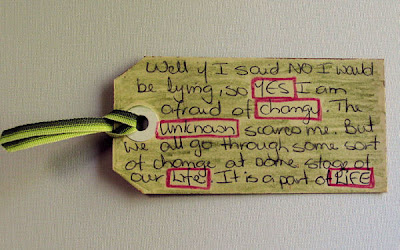 Well if I said NO I would
be lying, so YES I am
afraid of change. The
unknown scares me. But
we all go through some sort
of change at some stage of
our Life. It is a part of LIFE